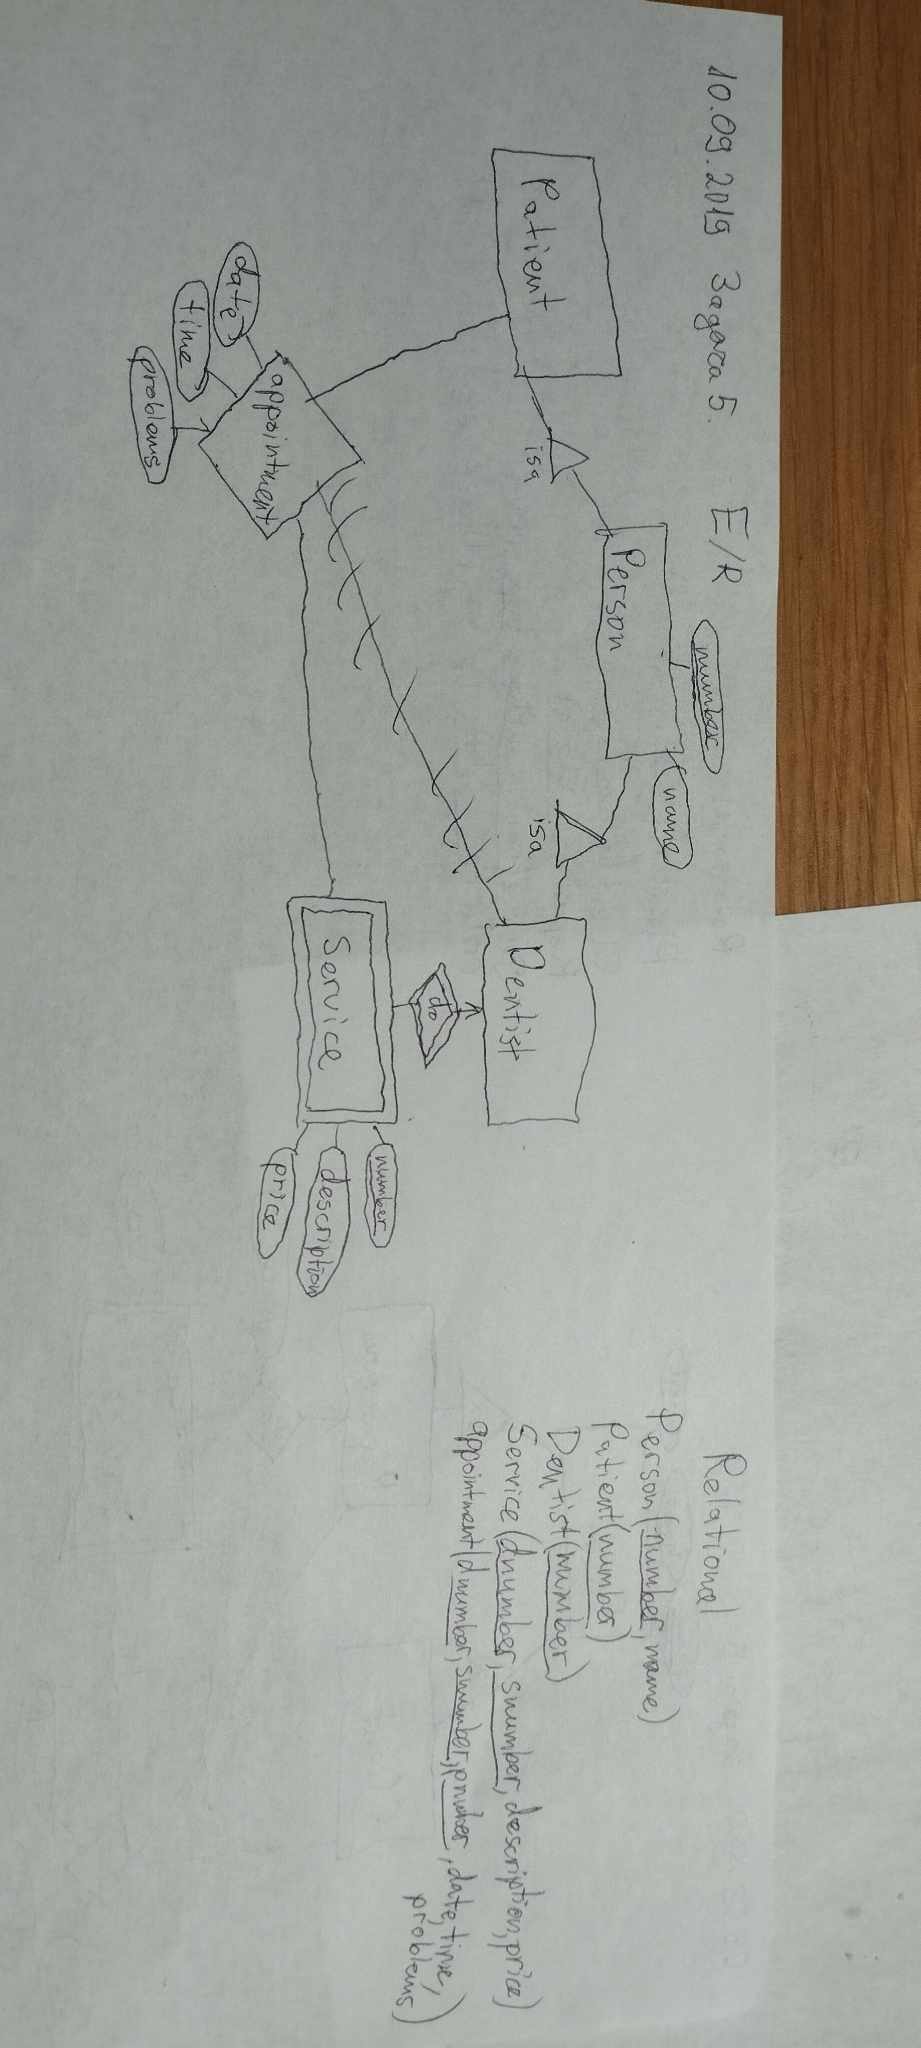 10.09.2019 Задача 5. E/R
number
name
Person
isa
isa
Patient
Dentist
do
appointment
date
time
problems
Service
number
description
price
Relational
Person(number, name)
Patient(number)
Dentist(number)
Service(dnumber, snumber, description, price)
appointment(dnumber, snumber, pnumber, date, time,
problems)